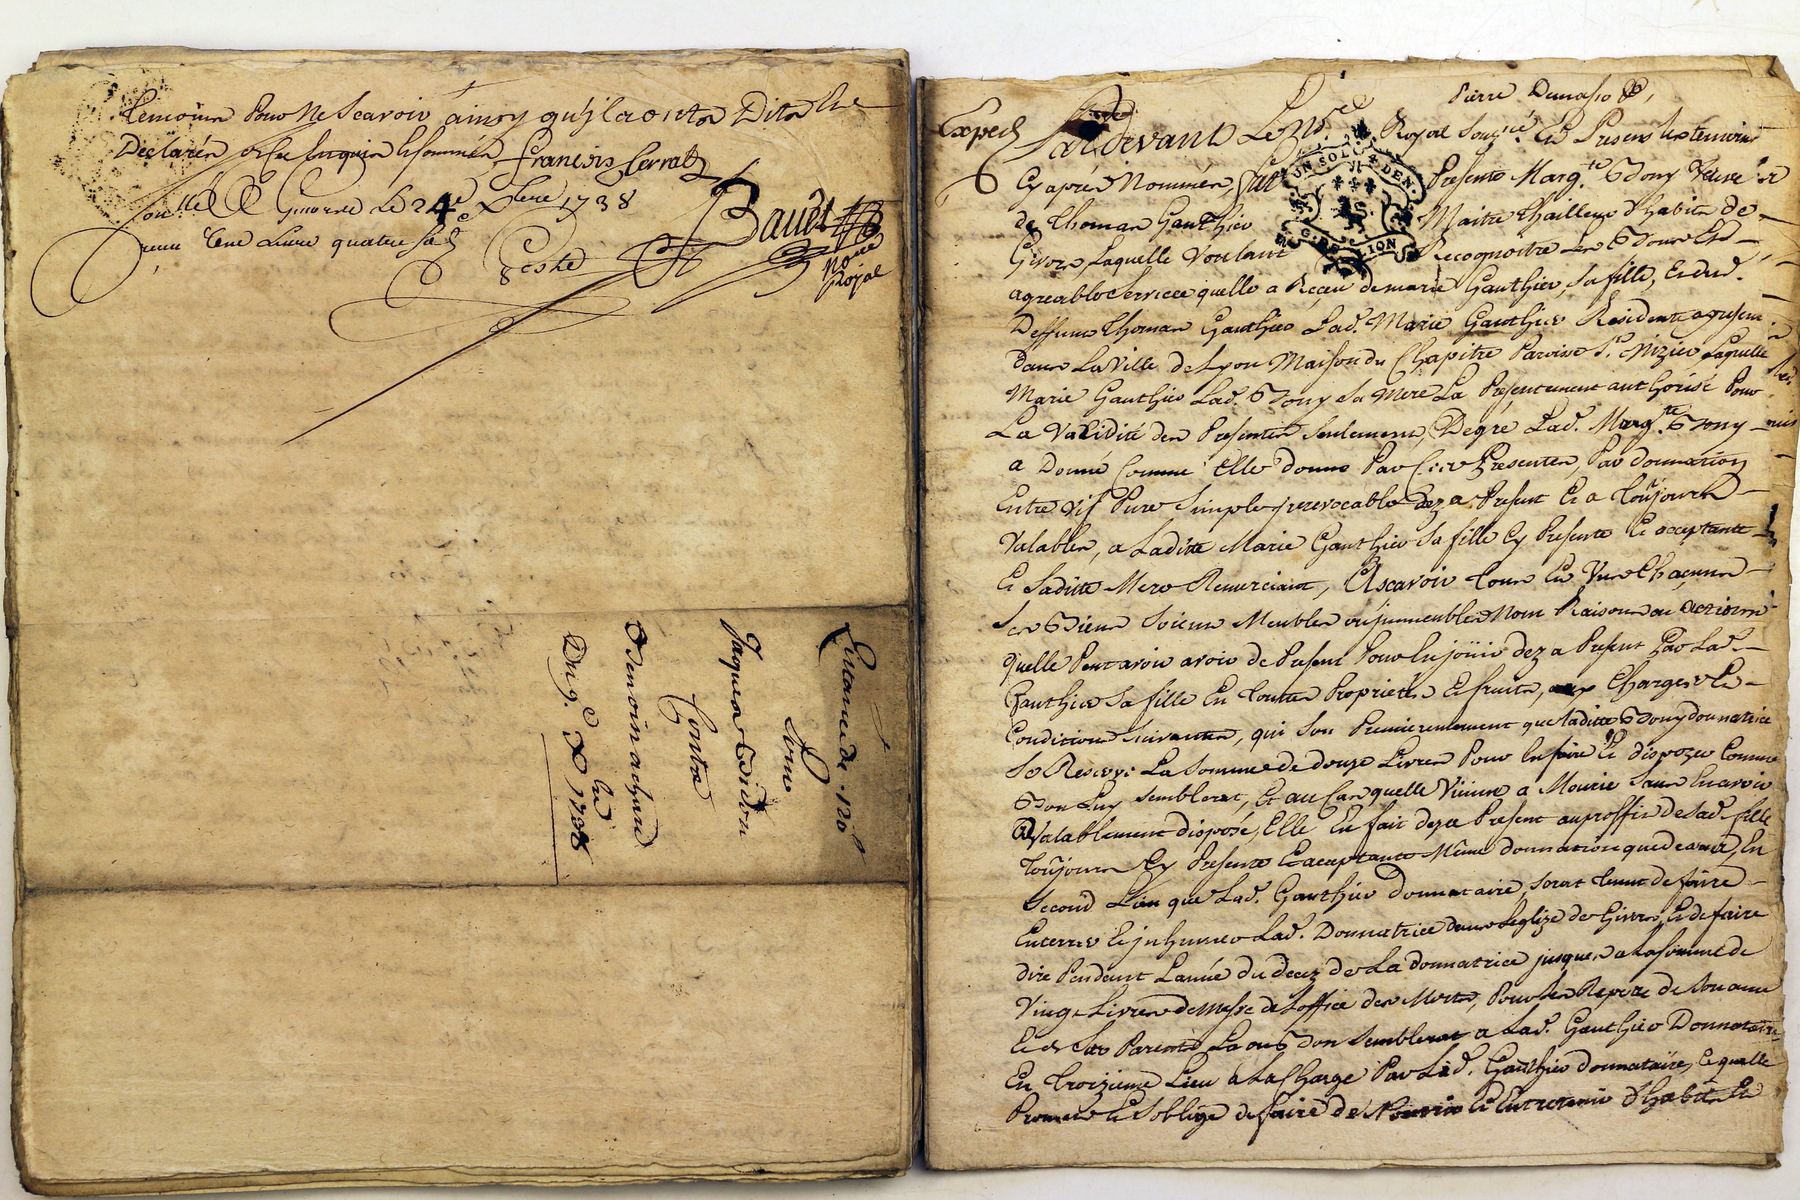 temoins Pour ne Scavoir ainsy qu'il ont Dit Et
Declarés de ce Enquis et sommés françois ferrat
Conllé a Givors Le 24e Xbre 1738
Receu Une Livre quatre sols
Coste
Bauet
Nore
Royal
Quittance de 120tt
Pour
Jaques Bridon
Contre
Benoit machard
Du 9e Xbre 1738
Pierre Dumas
Exped
Pardevant Le Nore Royal Soussigné Et Presens Les temoins
Cy aprés Nommés, fut Presente Margte Bony Veuve
de Thomas Gauthier Maitre Tailleur d'habits de
Givors Laquelle Voulant Recognoitre Les Bons Et
agreables services quelle a Receu de marie Gauthier, sa fille, Et dud.
Deffunt Thomas Gauthier Lad. Marie Gauthier Residente a present
dans La Ville de Lyon Maison du Chapitre Paroisse St Nizier Laquelle
Marie Gauthier Lad. Bony Sa Mere La Presentement authorisé Pour
La Validité des Presentes seulement, De gré Lad. Margte Bony
a Donné Comme Elle donne Par Ces Presentes, Par donnation
Entre Vifs Pure Simple irrevocable dez a Present Et a Toujours
Valables, a Laditte Marie Gauthier Sa fille Cy Presente Et acceptante
Et Saditte Mere Remerciant, Ascavoir Tous Et Uns Chacuns
Ses Biens Soient Meubles ou immeubles Nom Raisons ou actions
quelle Peut avoir de Present Pour En jouir dez a Present Par Lad.
Gauthier Sa fille En Toutte Proprieté Et fruits, aux Charges Et
Conditions Suivantes, qui Son Premierement que Laditte Bony donnatrice
Se Reserve La Somme de douze Livres Pour En faire Et dispozer Comme
Bon Luy semblerat, Et au Cas quelle Vienne a Mourir Sans En avoir
Valablement disposé, Elle En fait dez a Present au proffit de Sad. fille
Toujours Cy Presente Et acceptante Même donnation que dessus, En
Second Lieu que Lad. Gauthier Donnataire, Serat Tenue de faire
Enterrer Et inhumer Lad. Donnatrice dans Leglize de Givors, Et de faire
dire Pendant Lannée du decez de La donnatrice jusques a La somme de
Vingt Livres de Messe de Loffice des Morts, Pour Le Repos de Son ame
Et de Ses Parents La ou Bon Semblerat a Lad. Gauthier Donnataire
En Troizieme Lieu a La Charge Par Lad. Gauthier donnataire, Laquelle
Promet Et Soblige de faire de Nourrir Et Entretenir d'habits Et